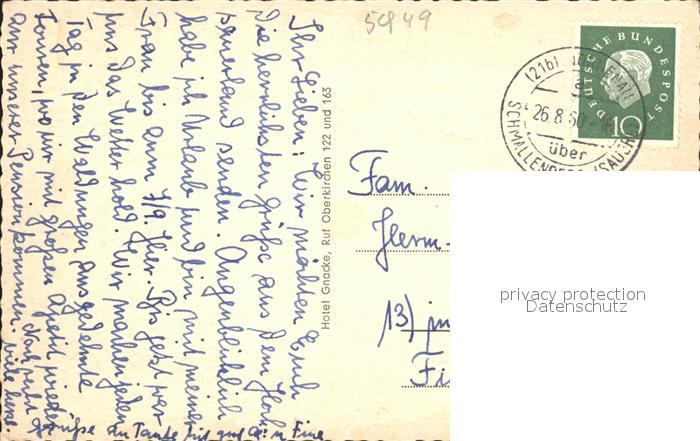 5949
DEUTSCHE BUNDESPOST
10
(21b)
a
26.8.60
über
SCHMALLENBERG (SAUERL)
Fam.
Herm.
13)
Fi
Hotel Gnacke, Ruf Oberkirchen 122 und 163
Ihr Lieben! Wir möchten Euch
die herrlichsten Grüße aus dem Hoch-
sauerland senden. Augenblicklich
habe ich Urlaub und bin mit meiner
Frau bis zum 4/9. hier. Bis jetzt war
uns das Wetter hold. Wir machen jeden
Tag in den Waldungen ausgedehnte
Touren, wo wir mit großen Apetit wieder
zur unserer Pension kommen.
Nach recht
viele herz.
Grüße an Tante
u. Fine
privacy protection
Datenschutz